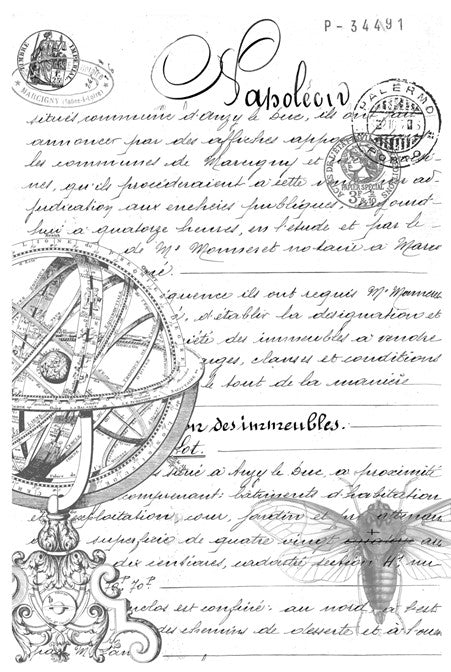 P-34491
TIMBRE IMPERIAL
MARCIGNY (Saône-et-Loire)
Napoléon
PALERMO
PORTO
PAPIER SPECIAL
situés commune d'Anzy le Duc, ils ont fait
annoncer par des affiches appo
les communes de Marcigny et
nes, qu'ils procéderaient à cette
judication aux enchères publiques,
hui à quatorze heures, en l'étude et par le
de Me notaire à Marci
équence ils ont requis Me
s, d'établir la désignation et
iété des immeubles à vendre
arges, clauses et conditions
le tout de la manière
on des immeubles.
lot.
à Anzy le Duc, à proximité
comprenant: bâtiments d'habitation
et exploitation, cour, jardin et
superficie de quatre vingt au
dix centiares, cadastré section nu
70P
clos est confiné: au nord, à l'est
des chemins de desserte et à l'oues
par M.